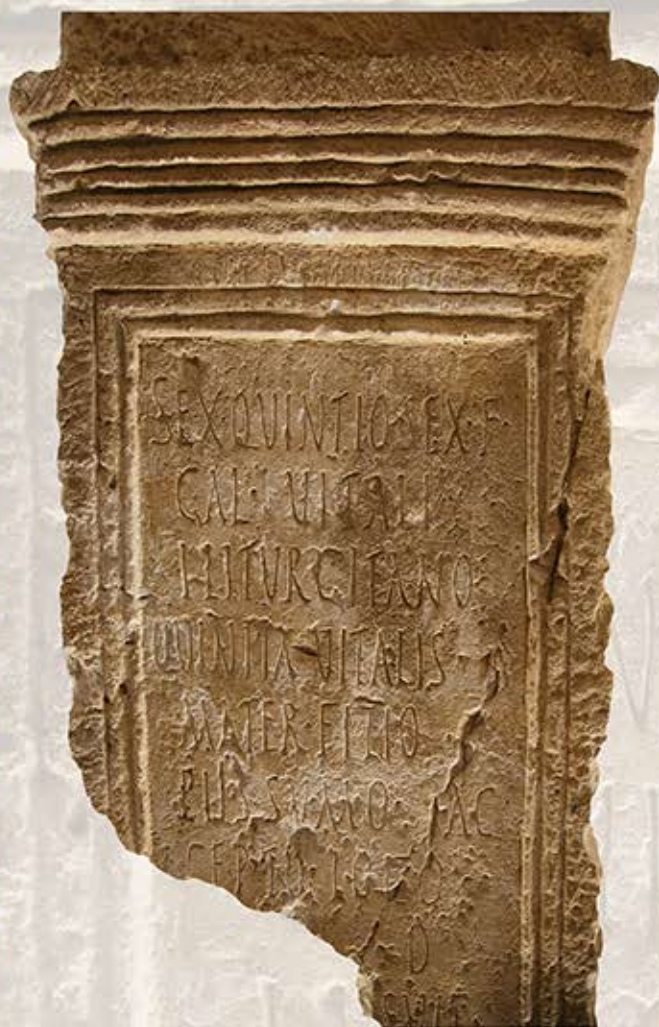 SEX·QUINTIO·SEX·F
GAL·VITALI
ILITURGITANO
QUINTIA·VITALIS
MATER·FILIO
PIISSIMO·AC
CEPTO·LOCO
D